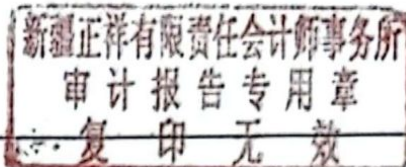 新疆正祥有限责任会计师事务所
审计报告专用章
复印无效